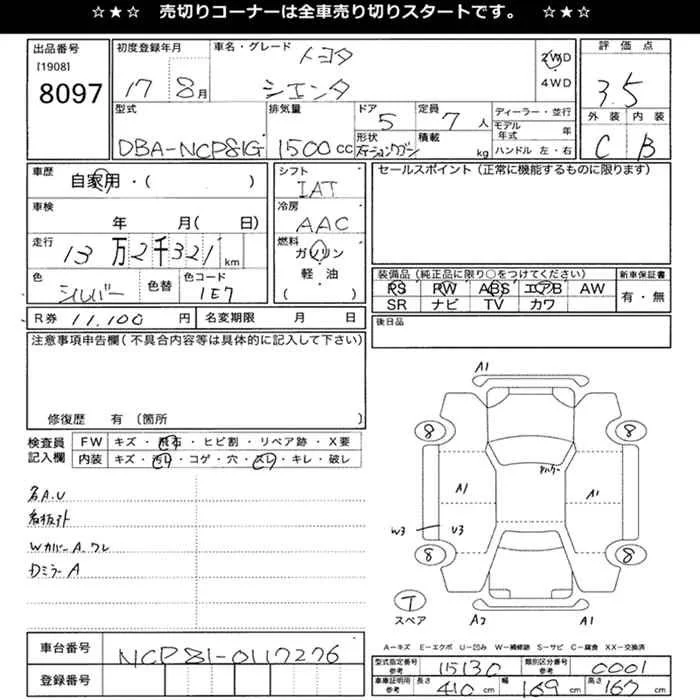 ☆★☆ 売切りコーナーは全車売り切りスタートです。 ☆★☆
出品番号
[1908]
8097
初度登録年月
17 8月
車名・グレード
トヨタ
シエンタ
2WD
4WD
評価点
3.5
外装 内装
C B
型式
DBA-NCP81G
排気量
1500cc
ドア
5
形状
ステーションワゴン
定員
7人
積載
kg
ディーラー・並行
モデル年式 年
ハンドル 左・右
車歴
自家用・( )
車検
年 月( 日)
走行
13万2千321km
色
シルバー
色替
色コード
1E7
シフト
IAT
冷房
AAC
燃料
ガソリン
軽・油
( )
セールスポイント(正常に機能するものに限ります)
装備品(純正品に限り○をつけてください)
PS PW ABS エアB AW
SR ナビ TV カワ
新車保証書
有・無
R券 11,100円
名変期限 月 日
後日品
注意事項申告欄(不具合内容等は具体的に記入して下さい)
修復歴 有 〔箇所 〕
検査員
記入欄
FW キズ・飛石・ヒビ割・リペア跡・X要
内装 キズ・汚れ・コゲ・穴・スレ・キレ・破レ
各A.U
Wカバー A.ワレ
Dミラー A
A1
8 8
A1 A1
W3 U3
8 8
T
スペア
A2 A1
A-キズ E-エクボ U-凹み W-補修跡 S-サビ C-腐食 XX-交換済
車台番号
NCP81-0117276
登録番号
型式指定番号
参考
15130
類別区分番号
参考
0001
車庫証明用
参考
長さ 410cm 幅 169cm 高さ 167cm